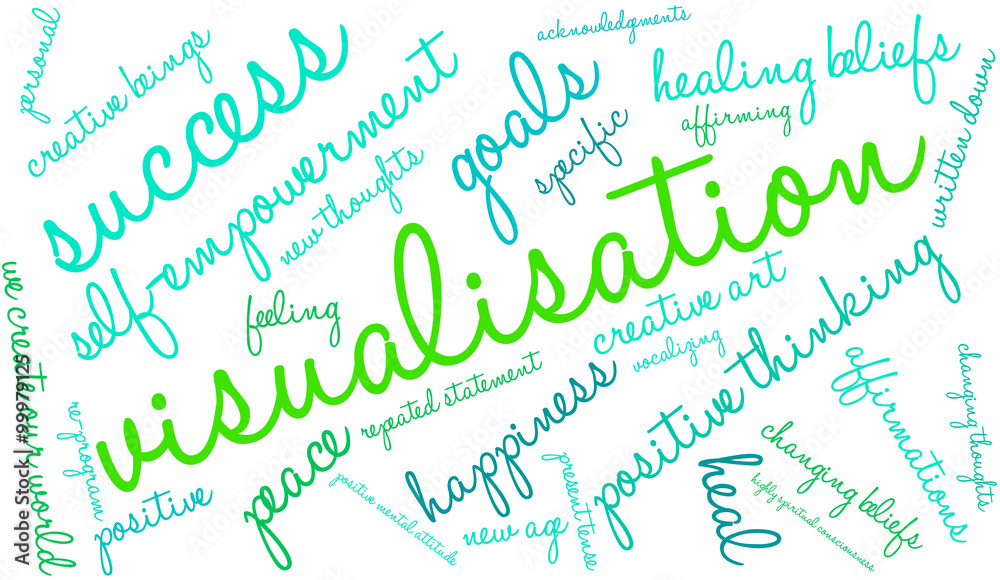 personal
creative beings
success
self-empowerment
new thoughts
acknowledgments
goals
specific
healing beliefs
affirming
written down
visualisation
feeling
we create our world
re-program
positive
peace
repeated statement
positive mental attitude
happiness
new age
present tense
creative art
vocalizing
positive thinking
heal
changing beliefs
highly spiritual consciousness
affirmations
changing thoughts
Adobe Stock | #99979125